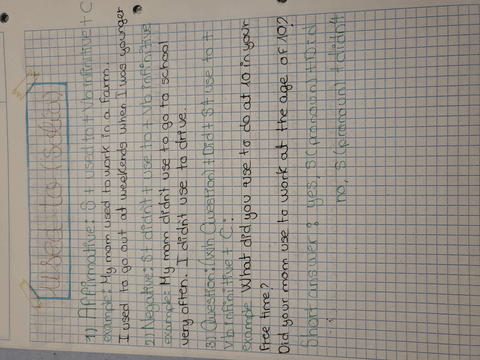 Used to (Solía)
1) Affirmative: S + used to + Vb infinitive + C
example: My mom used to work in a farm.
I used to go out at weekends when I was younger
2) Negative: S + didn't + use to + Vb infinitive
example: My mom didn't use to go to school
very often. I didn't use to drive.
3) Question: (Wh Question) + Did + S + use to +
Vb infinitive + C:
example: What did you use to do at 10 in your
free time?
Did your mom use to work at the age of 10?
Short answer: yes, S (pronoun) + Did
no, S (pronoun) + didn't